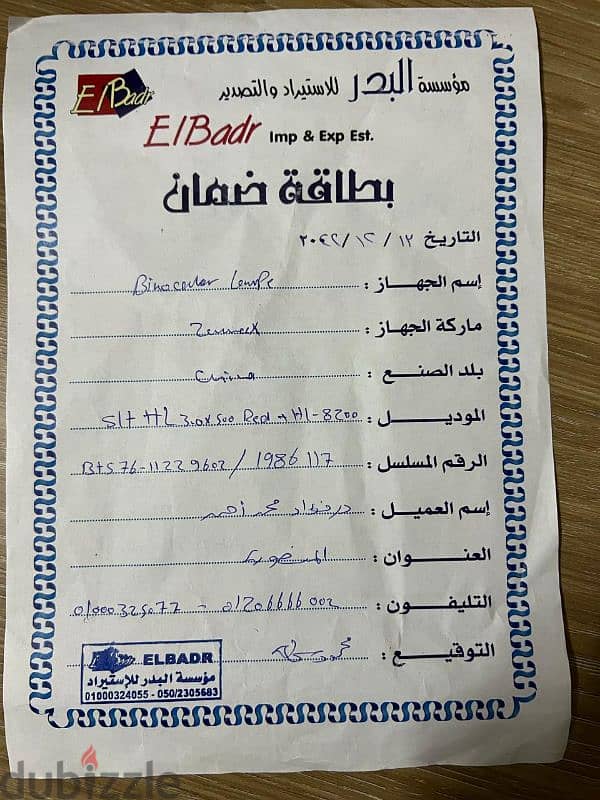 ElBadr
مؤسسة البدر للاستيراد والتصدير
ElBadr Imp & Exp Est.
بطاقة ضمان
التاريخ ١٢ / ١٢ / ٢٠٢٢
إسم الجهـــاز : Binocular Loups
ماركة الجهاز :
بلد الصنع : China
الموديـــل : SLH HL 3.0x500 Red + HL-8200
الرقم المسلسل : BtS76-11229602 / 1986117
إسم العميـل : محمد أحمد
العنـــوان : المنصورة
التليفـــون : 01000325077 - 01206666002
التوقيـــع :
ELBADR
مؤسسة البدر للإستيراد
01000324055 - 050/2305683
dubizzle